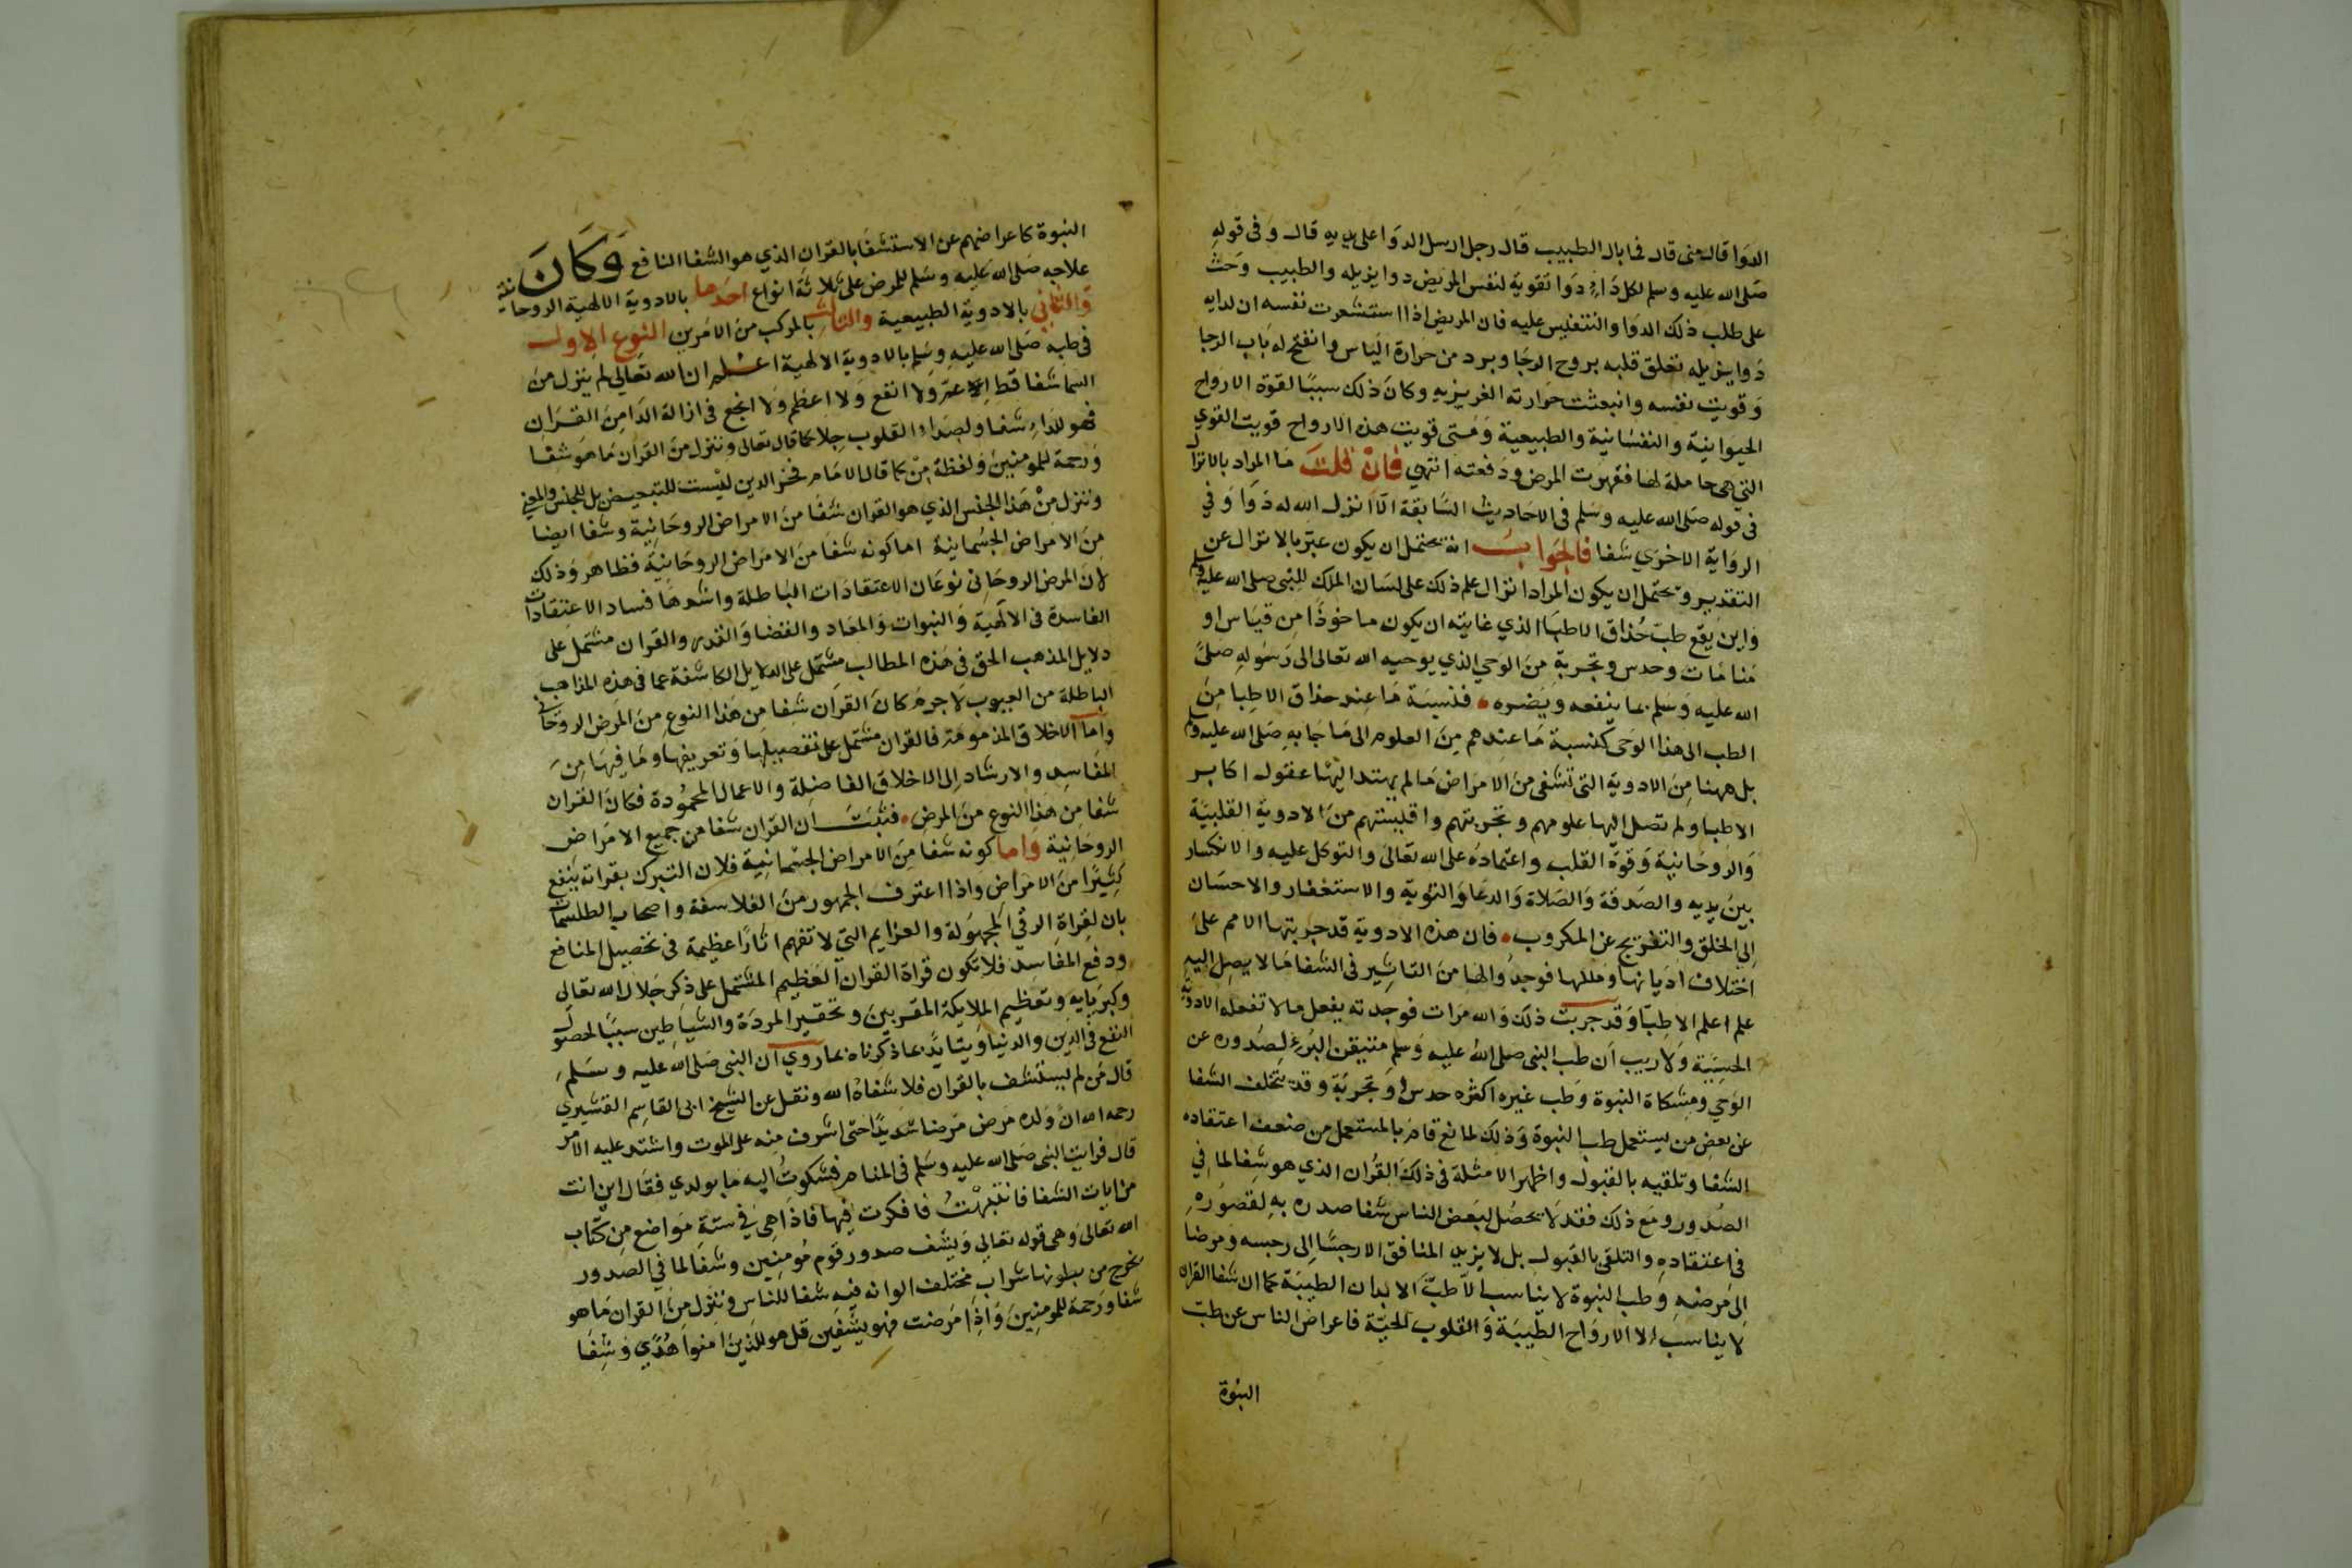 الدوا قال مني قال فما بال الطبيب قال رجل ارسل الدوا على يديه قال وفي قوله
صلى الله عليه وسلم لكل داء دوا تقوية لنفس المريض دوا يزيله والطبيب وحث
على طلب ذلك الدوا والتفتيس عليه فان المريض اذا استشعرت نفسه ان لدايه
دوا يزيله تعلق قلبه بروح الرجا وبرد من حرارة الياس وانفتح له باب الرجا
وقويت نفسه وانبعثت حرارته الغريزيه وكان ذلك سببا لقوة الارواح
الحيوانية والنفسانية والطبيعية ومتى قويت هذه الارواح قويت القوي
التي هي حاملة لها فقهرت المرض ودفعته انتهي فان قلت ما المراد بالانزال
في قوله صلى الله عليه وسلم في الاحاديث السابقة الا انزل الله له دوا وفي
الرواية الاخرى شفا فالجواب انه يحتمل ان يكون عبر بالانزال عن
التقدير ويحتمل ان يكون المراد انزال علم ذلك على لسان الملك للنبي صلى الله عليه وسلم
واين يقع طب حذاق الاطبا الذي غايته ان يكون ماخوذا من قياس او
منامات وحدس وتجربة من الوحي الذي يوحيه الله تعالى الى رسوله صلى
الله عليه وسلم بما ينفعه ويضره فنسبة ما عند حذاق الاطبا من
الطب الى هذا الوحي كنسبة ما عندهم من العلوم الى ما جا به صلى الله عليه وسلم
بل ههنا من الادوية التي تشفي من الامراض ما لم يهتد اليها عقول اكابر
الاطبا ولم تصل اليها علومهم وتجربتهم واقيستهم من الادوية القلبية
والروحانية وقوة القلب واعتماده على الله تعالى والتوكل عليه والانكسار
بين يديه والصدقة والصلاة والدعا والتوبة والاستغفار والاحسان
الى الخلق والتفريج عن المكروب فان هذه الادوية قد جربتها الامم على
اختلاف اديانها ومللها فوجدوا لها من التاثير في الشفا ما لا يصل اليه
علم اعلم الاطبا وقد جربت ذلك والله مرات فوجدته يفعل ما لا تفعله الادوية
الحسية ولا ريب ان طب النبي صلى الله عليه وسلم متيقن البرء لصدوره عن
الوحي ومشكاة النبوة وطب غيره اكثره حدس او تجربة وقد يتخلف الشفا
عن بعض من يستعمل طب النبوة وذلك لمانع قام بالمستعمل من ضعف اعتقاده
الشفا وتلقيه بالقبول واظهر الامثلة في ذلك القران الذي هو شفا لما في
الصدور ومع ذلك فقد لا يحصل لبعض الناس شفا صدره به لقصوره
في اعتقاده والتلقي بالقبول بل لا يزيد المنافق الا رجسا الى رجسه ومرضا
الى مرضه وطب النبوة لا يناسب الا طب الابدان الطيبة كما ان شفا القران
لا يناسب الا الارواح الطيبة والقلوب الحية فاعراض الناس عن طب
النبوة
النبوة كاعراضهم عن الاستشفا بالقران الذي هو الشفا النافع وكان
علاجه صلى الله عليه وسلم للمرض على ثلاثة انواع احدها بالادوية الالهية الروحانية
والثاني بالادوية الطبيعية والثالث بالمركب من الامرين النوع الاول
في طبه صلى الله عليه وسلم بالادوية الالهية اعلم ان الله تعالى لم ينزل من
السما شفا قط اعم ولا انفع ولا اعظم ولا انجع في ازالة الدا من القران
فهو للداء شفا ولصداء القلوب جلا كما قال تعالى وننزل من القران ما هو شفا
ورحمة للمومنين ولفظة من كما قال الامام فخر الدين ليست للتبعيض بل للجنس والمعنى
وننزل من هذا الجنس الذي هو القران شفا من الامراض الروحانية وشفا ايضا
من الامراض الجسمانية اما كونه شفا من الامراض الروحانية فظاهر وذلك
لان المرض الروحاني نوعان الاعتقادات الباطلة واشدها فسادا الاعتقادات
الفاسدة في الالهية والنبوات والمعاد والقضا والقدر والقران مشتمل على
دلايل المذهب الحق في هذه المطالب مشتمل على الدلايل الكاشفة عما في هذه المذاهب
الباطلة من العيوب لا جرم كان القران شفا من هذا النوع من المرض الروحاني
واما الاخلاق المذمومة فالقران مشتمل على تفصيلها وتعريفها وما فيها من
المفاسد والارشاد الى الاخلاق الفاضلة والاعمال المحمودة فكان القران
شفا من هذا النوع من المرض فثبت ان القران شفا من جميع الامراض
الروحانية واما كونه شفا من الامراض الجسمانية فلان التبرك بقراته ينفع
كثيرا من الامراض واذا اعترف الجمهور من الفلاسفة واصحاب الطلسمات
بان لقراة الرقي المجهولة والعزايم التي لا تفهم اثارا عظيمة في تحصيل المنافع
ودفع المفاسد فلا تكون قراة القران العظيم المشتمل على ذكر جلال الله تعالى
وكبريايه وتعظيم الملايكة المقربين وتحقير المردة والشياطين سببا لحصول
النفع في الدين والدنيا ويتايد بما ذكرناه بما روي ان النبي صلى الله عليه وسلم
قال من لم يستشف بالقران فلا شفاه الله ونقل عن الشيخ ابي القاسم القشيري
رحمه الله ان ولده مرض مرضا شديدا حتى اشرف منه على الموت واشتد عليه الامر
قال فرايت النبي صلى الله عليه وسلم في المنام فشكوت اليه ما بولدي فقال اين انت
من ايات الشفا فانتبهت فافكرت فيها فاذا هي في ستة مواضع من كتاب
الله تعالى وهي قوله تعالى ويشف صدور قوم مومنين وشفا لما في الصدور
يخرج من بطونها شراب مختلف الوانه فيه شفا للناس وننزل من القران ما هو
شفا ورحمة للمومنين واذا مرضت فهو يشفين قل هو للذين امنوا هدي وشفا